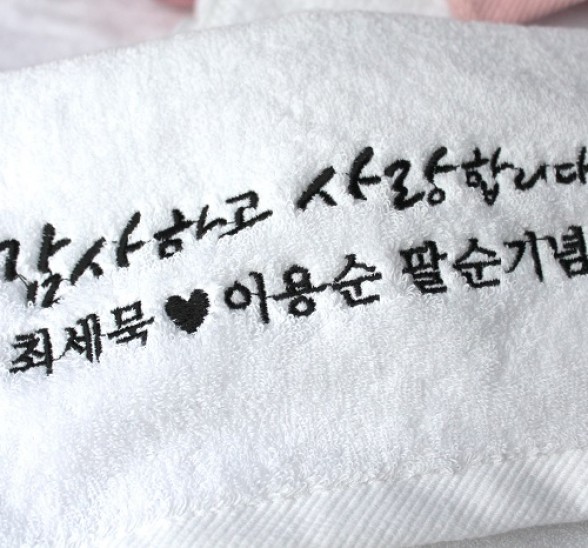 감사하고 사랑합니다
최세묵♥이용순 팔순기념